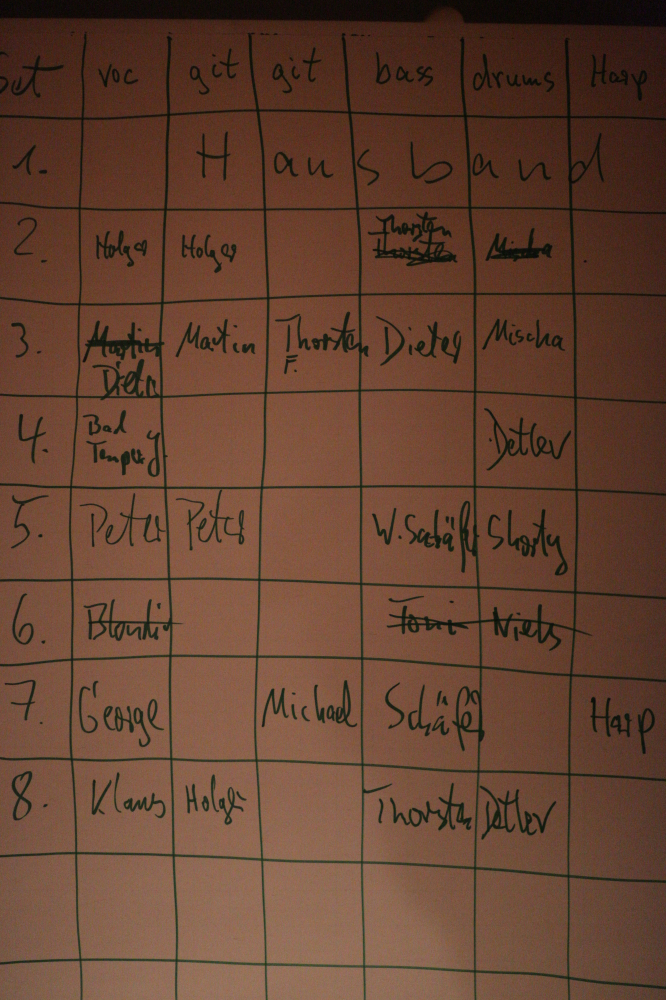 Set voc git git bass drums Harp
1. Hausband
2. Holger Holger Thorsten Thorsten Mischa
3. Martin Martin Thorsten Dieter Mischa
Dieter F.
4. Bad Detlev
5. Peter Peter W. Schäfer Shorty
6. Blondie Toni Niels
7. George Michael Schäfer Harp
8. Klaus Holger Thorsten Detlev